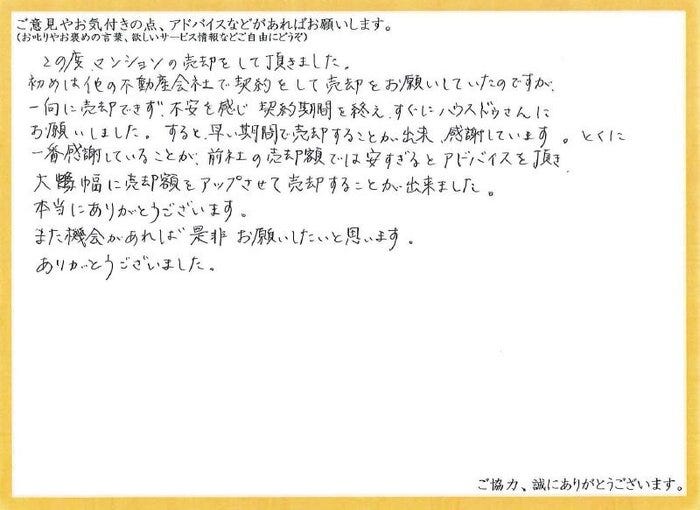 ご意見やお気付きの点、アドバイスなどがあればお願いします。
(お叱りやお褒めの言葉、欲しいサービス情報などご自由にどうぞ)
この度マンションの売却をして頂きました。
初めは他の不動産会社で契約をして売却をお願いしていたのですが、
一向に売却できず、不安を感じ 契約期間を終え、すぐにハウスドゥさんに
お願いしました。すると、早い期間で売却することが出来、感謝しています。とくに
一番感謝していることが、前社の売却額では安すぎるとアドバイスを頂き、
大幅に売却額をアップさせて売却することが出来ました。
本当にありがとうございます。
また機会があれば是非 お願いしたいと思います。
ありがとうございました。
ご協力、誠にありがとうございます。